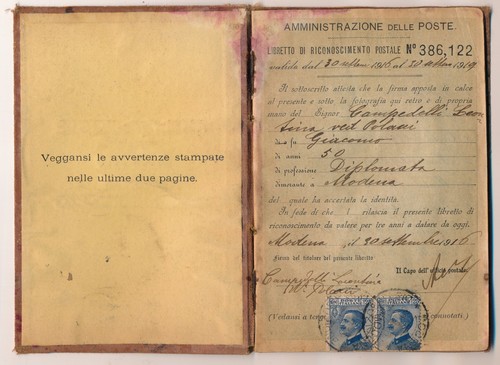 Veggansi le avvertenze stampate
nelle ultime due pagine.
AMMINISTRAZIONE DELLE POSTE.
LIBRETTO DI RICONOSCIMENTO POSTALE N° 386,122
valida dal 30 settem 1916 al 30 settem 1919
Il sottoscritto attesta che la firma apposta in calce
al presente e sotto la fotografia qui retro è di propria
mano del Signor Campedelli Leon
tina ved Polacci
di fu Giacomo
di anni 50
di professione Diplomata
dimorante a Modena
del quale ha accertata la identità.
In fede di che rilascia il presente libretto di
riconoscimento da valere per tre anni a datare da oggi.
Modena, il 30 settembre 1916
Firma del titolare del presente libretto
Il Capo dell'ufficio postale
Campedelli Leontina
(Vedansi a tergo connotati.)